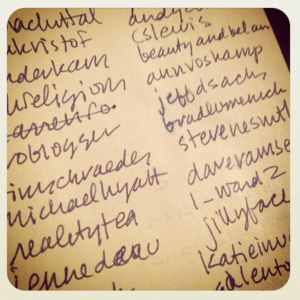 achuttal
kristof
nderkam
religion
problogger
timschraeder
michaelhyatt
realitytea
jennedeau
cslewis
beautyandbelan
annvoskamp
jeffdsachs
bradlomenick
stevenesmith
daveramse
l_ward2
jillyface
katieinu